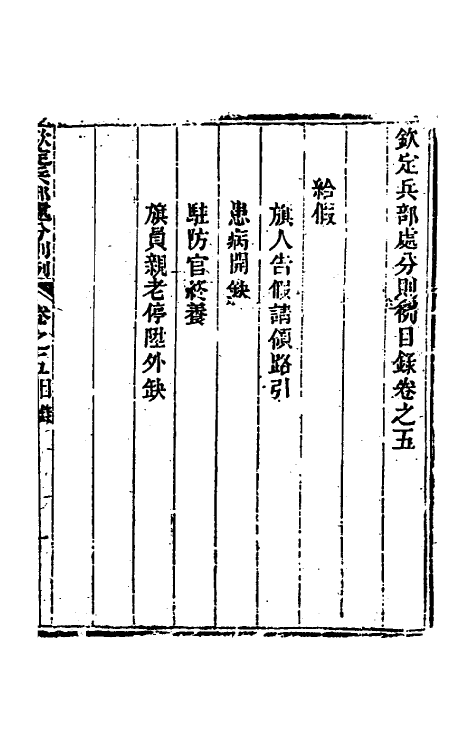 欽定兵部處分則例目錄卷之五
給假
旗人告假請領路引
患病開缺
駐防官終養
旗員親老停陞外缺
欽定兵部處分則例
卷之五目錄